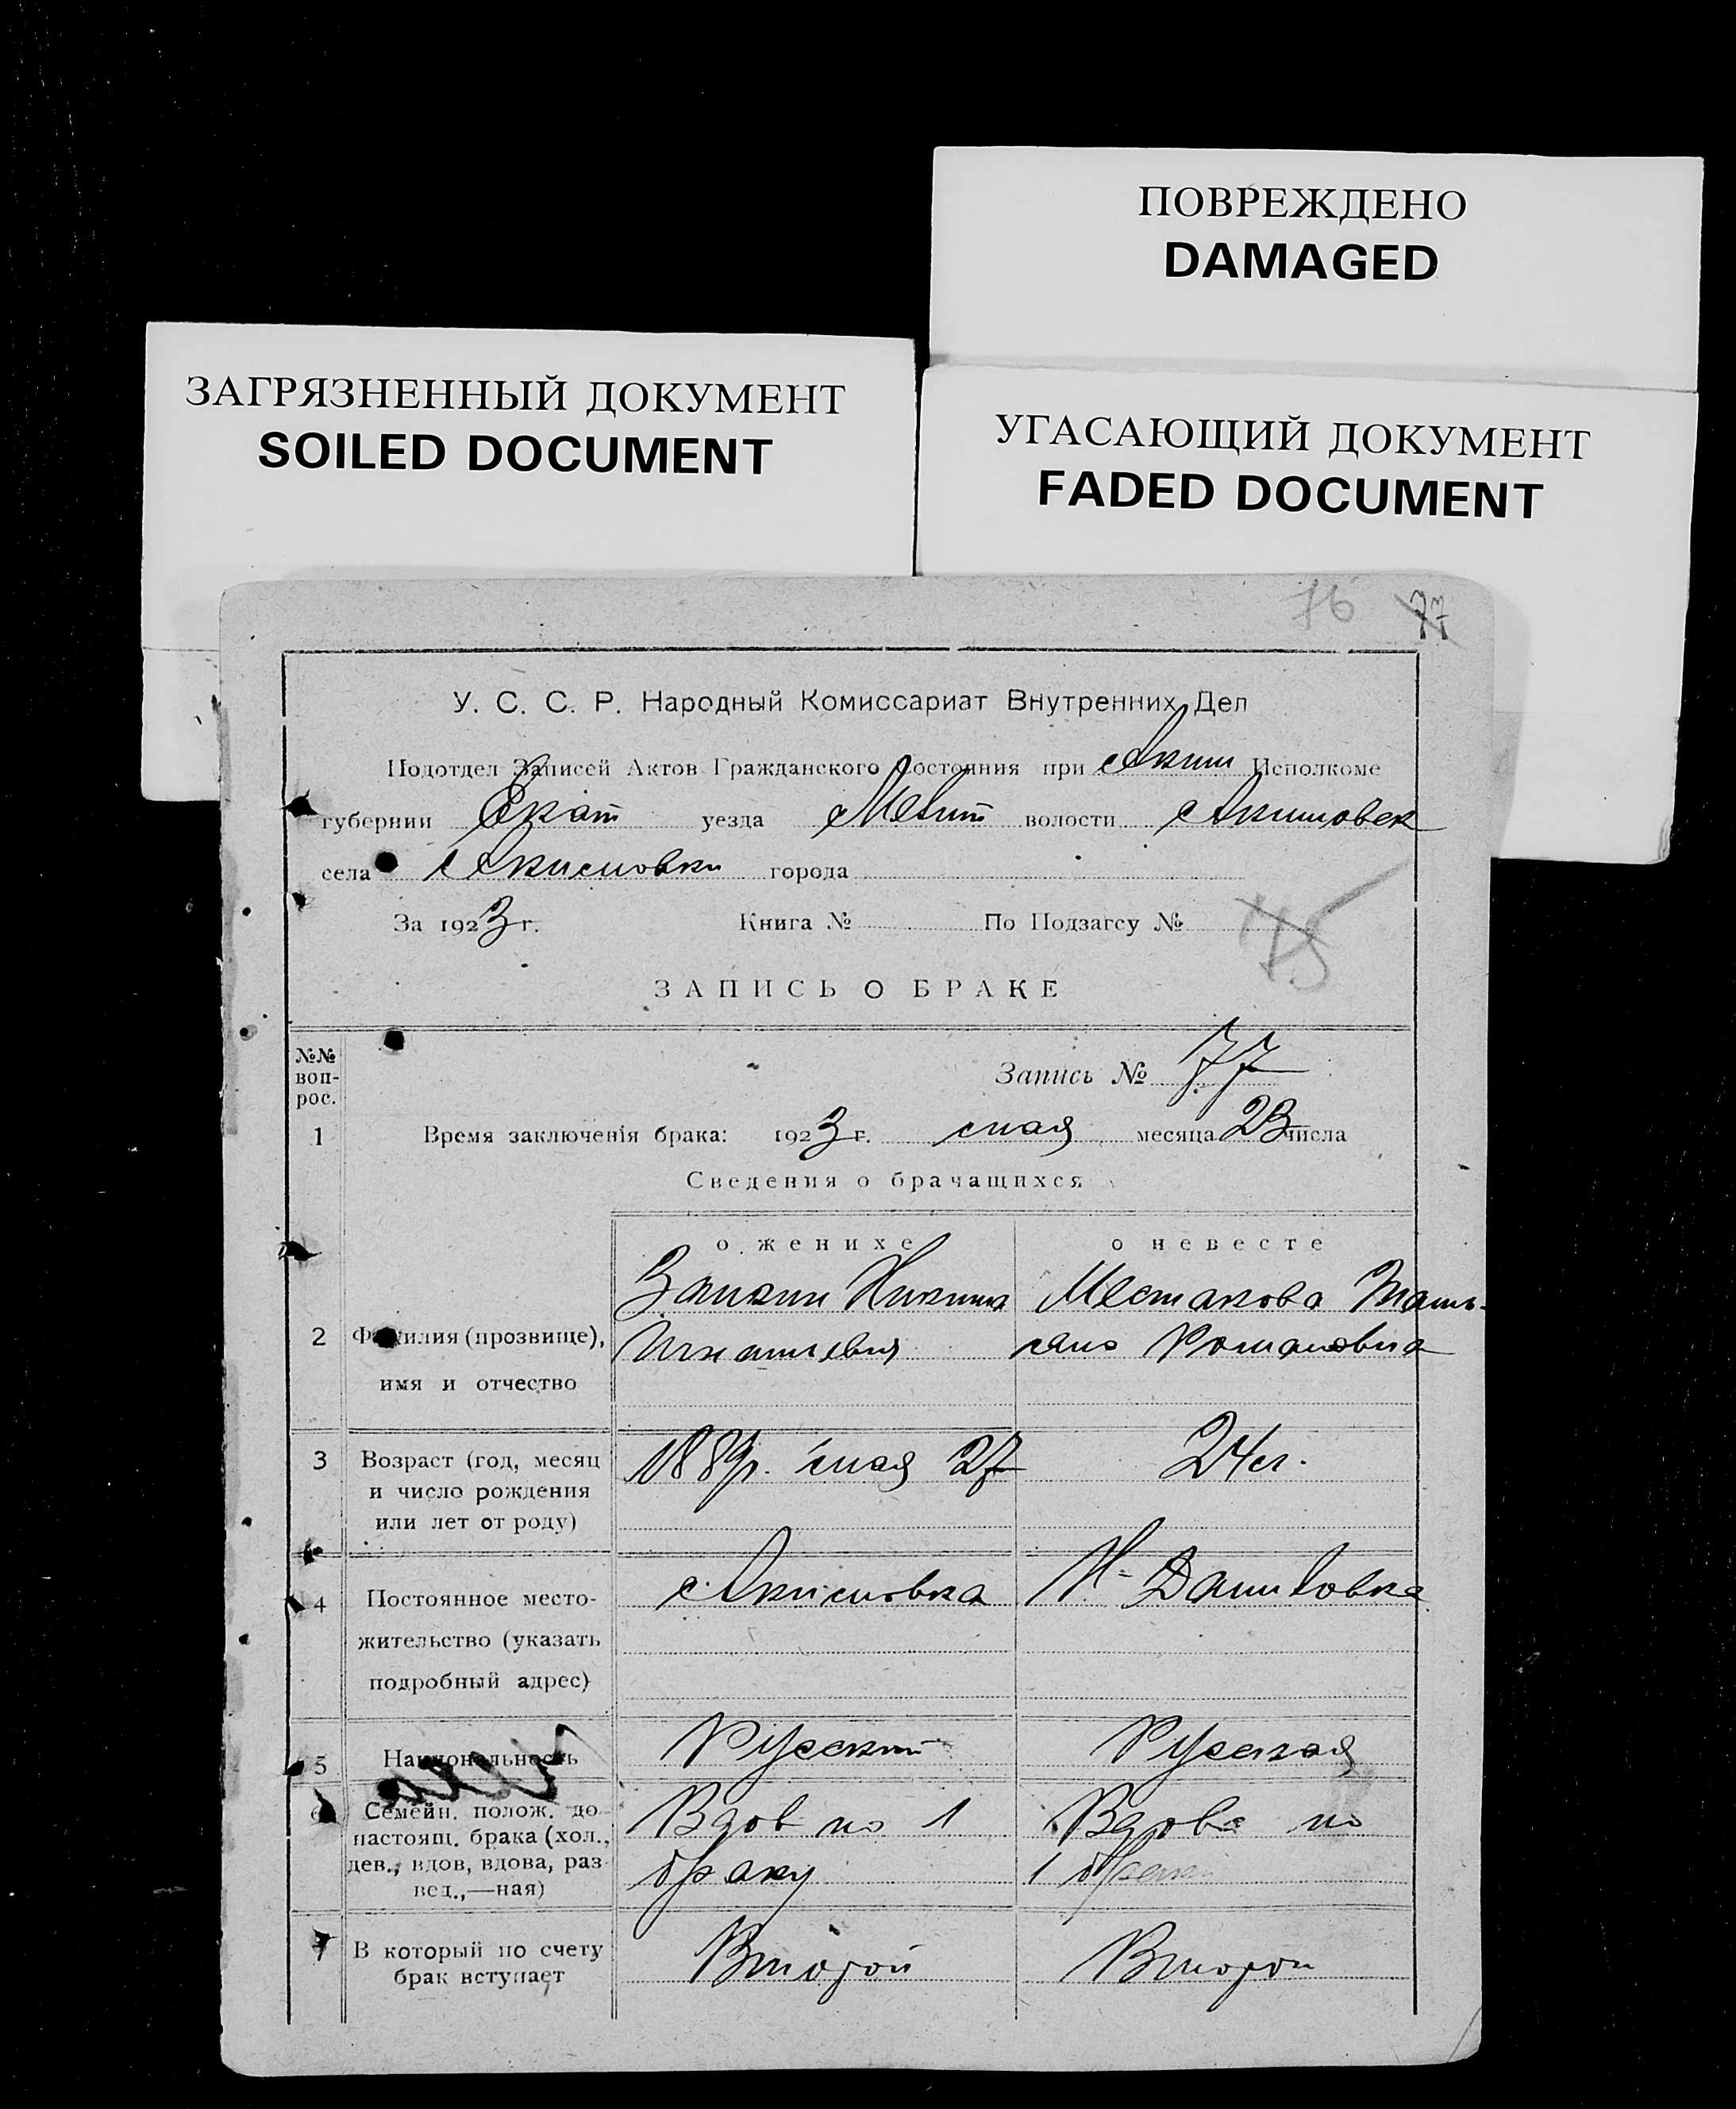 ПОВРЕЖДЕНО
DAMAGED
ЗАГРЯЗНЕННЫЙ ДОКУМЕНТ
SOILED DOCUMENT
УГАСАЮЩИЙ ДОКУМЕНТ
FADED DOCUMENT
76 77
У. С. С. Р. Народный Комиссариат Внутренних Дел
Подотдел Записей Актов Гражданского Состояния при Аким Исполкоме
губернии Екат уезда Мелит волости Акимовск
села Акимовки города
За 1923 г. Книга № По Подзагсу № 75
ЗАПИСЬ О БРАКЕ
№№ воп-рос.
Запись № 77
1 Время заключенія брака: 1923 г. мая месяца 23 числа
Сведения о брачащихся
о женихе о невесте
Заикин Никита Местакова Тать-
2 Фамилия (прозвище), Игнатиевич яна Романовна
имя и отчество
3 Возраст (год, месяц 1889г. мая 27 24 л.
и число рождения
или лет от роду)
4 Постоянное место- с. Акимовка Н-Даниловка
жительство (указать
подробный адрес)
5 Национальность Русский Русская
6 Семейн. полож. до Вдов по 1 Вдова по
настоящ. брака (хол.,
дев., вдов, вдова, раз браку 1 браку
вед.,—ная)
7 В который по счету Второй Второй
брак вступает